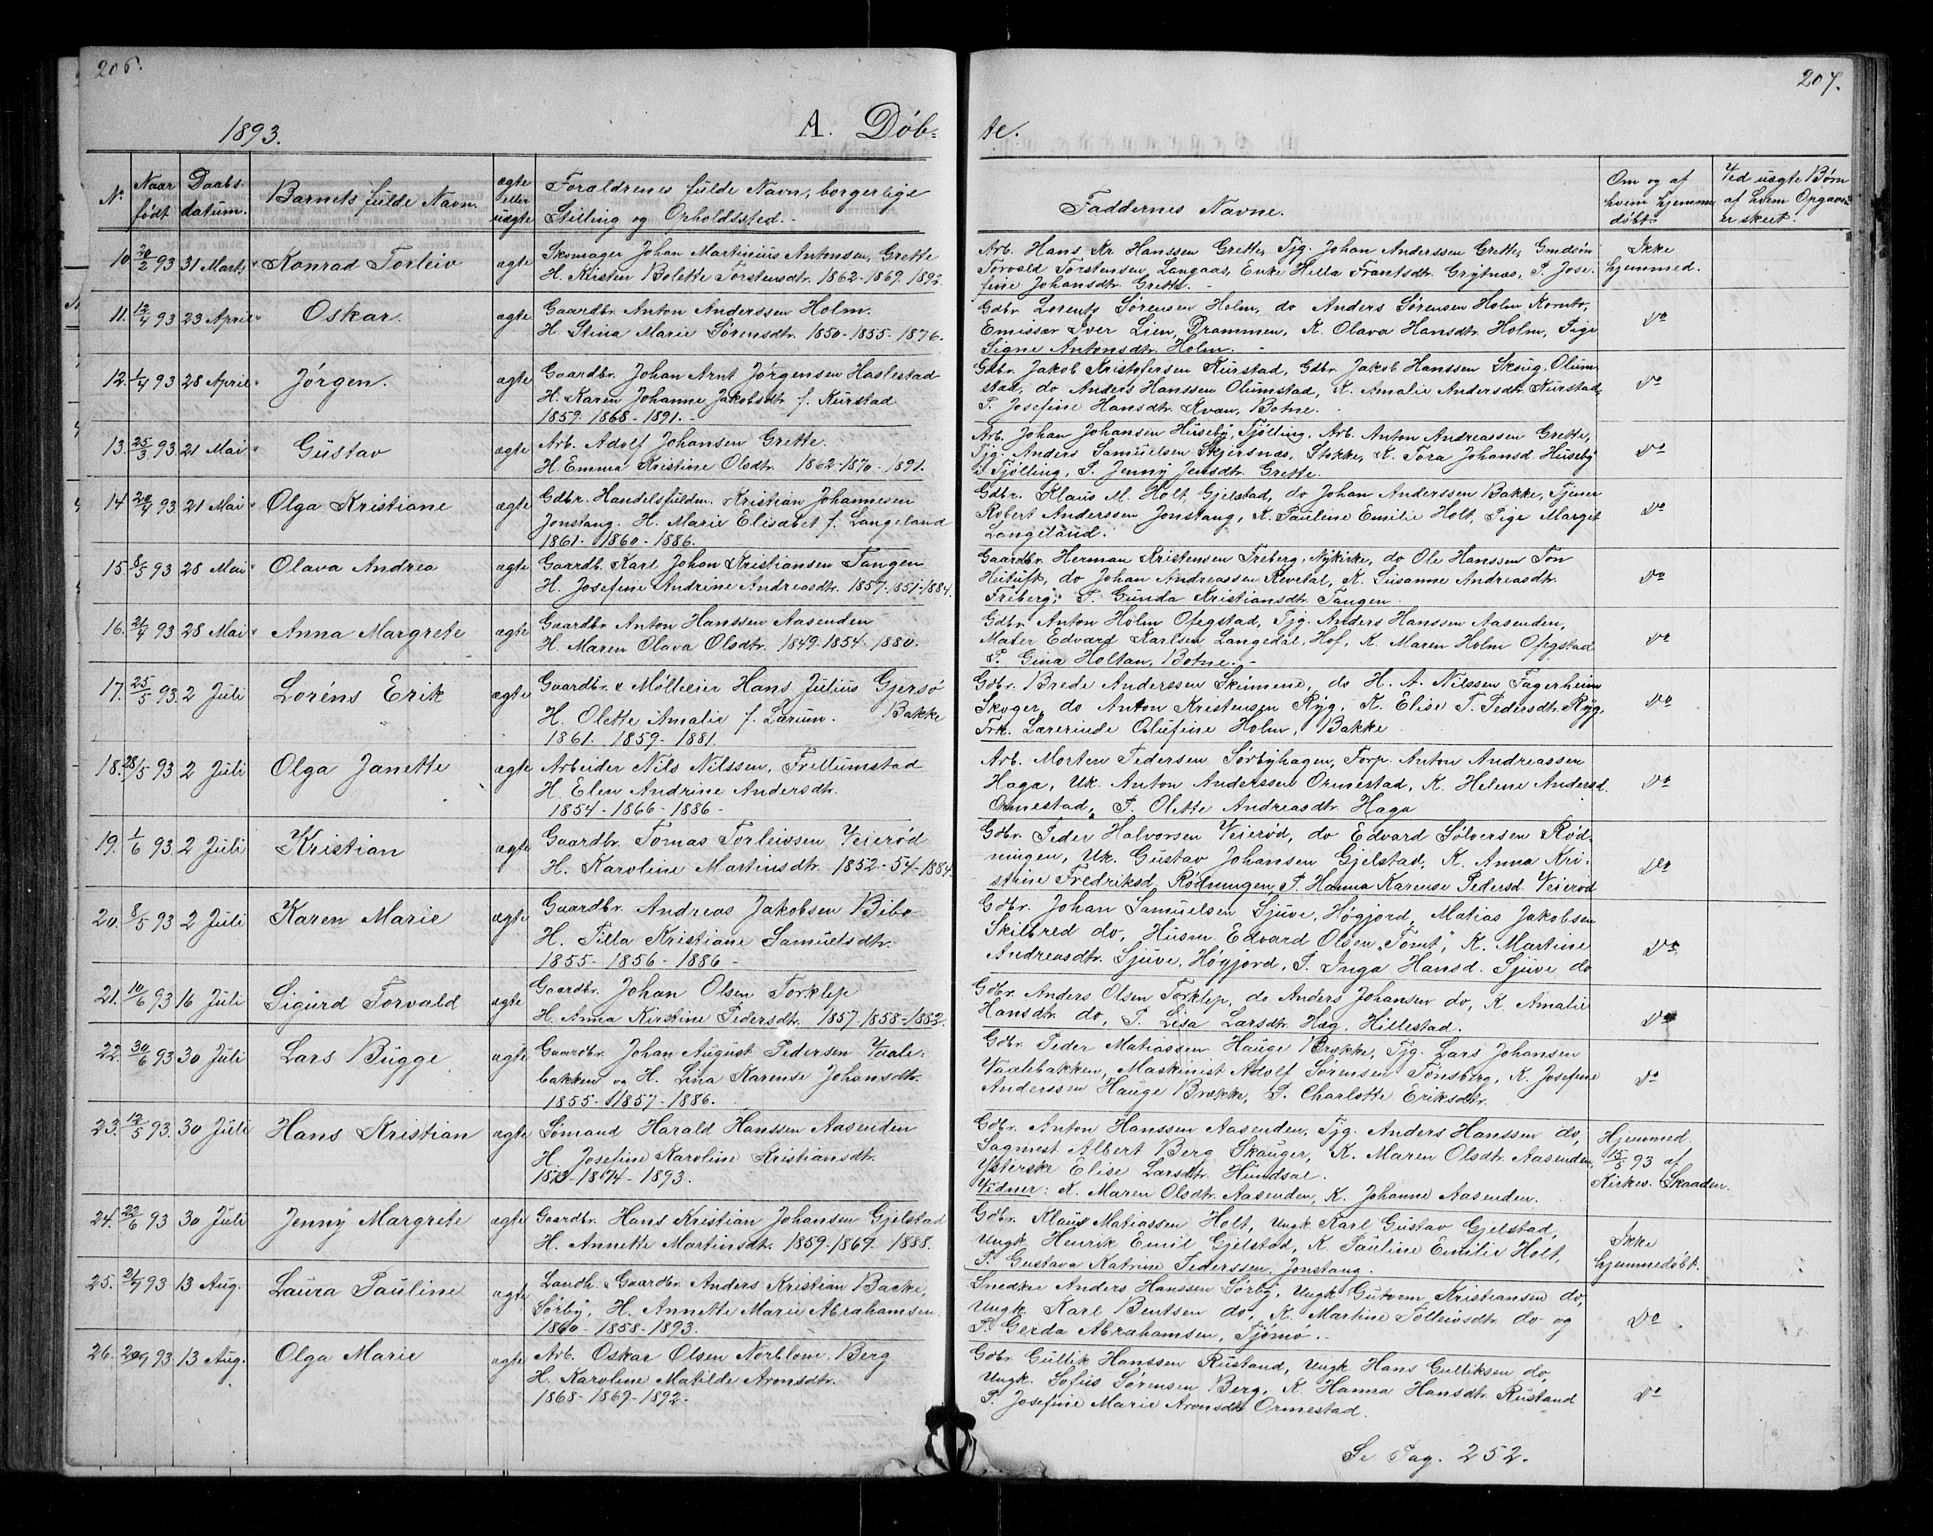 206.
1893. A. Døb-
No. Naar født Daabs-datum. Barnets fulde Navn. ægte eller uægte Forældrenes fulde Navn, borgerlige Stilling og Opholdssted.
10 20/2 93 31 Marts Konrad Torleiv ægte Skomager Johan Martinius Antonsen, Grette
H. Kristen Bolette Torstensdtr. 1862-1869. 1892.
11. 12/4 93 23 April Oskar. ægte Gaardbr. Anton Anderssen Holm.
H. Stina Marie Sørensdtr. 1850-1855-1876.
12. 1/4 93 28 April Jörgen. ægte Gaardbr. Johan Arnt Jørgensen Haslestad
H. Karen Johanne Jakobsdtr f. Kurstad
1859-1868-1891.-
13. 25/3 93. 21 Mai Gustav ægte Arb. Adolf Johansen Grette.
H. Emma Kristine Olsdtr. 1862-1870-1891.
14 20/4 93 21 Mai Olga Kristiane ægte Gdbr. Handelsfuldm. Kristian Johannesen
Jonstang. H. Marie Elisabet f. Langeland
1861-1860-1886.
15. 8/5 93 28 Mai Olava Andrea ægte Gaardb Karl Johan Kristiansen Tangen
H. Josefine Andrine Andreasdtr. 1857-1851-1884.
16. 21/4 93 28 Mai Anna Margrete ægte Gaardbr Anton Hanssen Aasenden
H. Maren Olava Olsdtr. 1849-1854-1880.
17. 25/5 93. 2 Juli Loréns Erik ægte Gaardbr & Mölleeier Hans Julius Gjersø
H. Olette Amalie f. Larum. Bakke
1861. 1859-1881.
18. 28/5 93 2 Juli Olga Janette ægte Arbeider Nils Nilssen, Frellumstad
H. Elen Andrine Andersdtr.
1854-1866-1886-
19. 1/6 93. 2 Juli Kristian ægte Gaardbr. Tomas Torleivsen Veierød
H. Karoline Martinsdtr. 1852-54-1884.
20. 8/5 93 2 Juli Karen Marie ægte Gaardbr. Andreas Jakobsen Bibo
H. Tilla Kristiane Samuelsdtr.
1855-1856-1886-
21. 10/6 93 16 Juli Sigurd Torvald ægte Gaardbr. Johan Olsen Torklep
H. Anna Kirstine Pedersdtr. 1857-1858-1882.
22. 30/6 93 30 Juli Lars Bugge ægte Gaardbr Johan August Pedersen Vaale-
bakken og H. Lina Karense Johansdtr.
1855-1857-1886.
23. 12/5 93. 30 Juli Hans Kristian ægte Sømand Harald Hanssen Aasenden
H. Josefine Karoline Kristiansdtr.
1873-1874-1893.
24. 22/6 93 30 Juli Jenny Margrete ægte Gaardbr. Hans Kristian Johansen Gjelstad
H. Annette Martinsdtr. 1859-1869-1888.
25. 93 13 Aug. Laura Pauline ægte Landh. & Gaardbr. Anders Kristian Backe,
Sørby, H. Annette Marie Abrahamsen.
1860-1858-1893.
26. 93. 13 Aug. Olga Marie ægte Arb. Oskar Olsen Norblom, Berg
H. Karoline Matilde Aronsdtr.
1868-1869-1892.
207.
te.
Faddernes Navne. Om og af hvem hjemmedøbt. Ved uægte Børn af hvem Opgaven er skeet.
Arb. Hans Kr Hanssen Grette, Tjg. Johan Anderssen Grette, Gmdsön Ikke
Torvald Torstensen, Langaas, Enke Hella Frantsdtr. Grytnæs, P. Jose- hjemmed.
fine Johansdtr. Grette.-
Gdbr. Lorents Sørensen Holm, do Anders Sørensen Holm Korntv, do
Emissær Iver Lien, Drammen, K. Olava Hansdtr. Holm, Pige
Signe Antonsdtr. Holm.-
Gdbr. Jakob Kristofersen Kurstad, Gdbr. Jakob Hanssen Skug, Olum- do
stad, do Anders Hanssen Olumstad, K. Amalie Andersdtr. Kurstad,
P. Josefine Hansdtr. Kvan, Botne.
Arb. Johan Johansen Huseby, Tjølling. Arb. Anton Andreassen Grette, do
Tjg. Anders Samuelsen Skjersnæs, Stokke, K. Tora Johansd Huseby
i Tjølling, P. Jenny Jensdtr. Grette.
Gdbr. Klaus M. Holt, Gjelstad, do Johan Anderssen Bakke, Tjener do
Robert Anderssen Jonstang, K. Pauline Emilie Holt, Pige Marget
Langeland.
Gaardbr. Herman Kristensen Freberg, Nykirke, do Ole Hanssen Ton do
Heituft, do Johan Andreassen Revetal, K. Susanne Andreasdtr.
Freberg, P. Gunda Kristiansdtr. Tangen.
Gdbr. Anton Holm Ofegstad, Tjg. Anders Hanssen Aasenden, do
Maler Edvard Karlsen Langedal, Hof, K. Maren Holm Ofegstad
P. Gina Holtan, Botne.-
Gdbr. Brede Anderssen Skimme, do H. A. Nilssen Fagerheim do
Skoger, do Anton Kristensen Ryg, K. Elise T. Pedersdtr. Ryg,
Frk. Lærerinde Olufine Holm, Bakke.
Arb. Morten Pedersen Sørbyhagen, Forp. Anton Andreassen do
Haga, Uk. Anton Anderssen Ormestad, K. Helene Andersd.
Ormestad, P. Olette Andreasdtr. Haga
Gdbr. Peder Halvorsen Veierød, do Edvard Sølversen Rød- do
ningen, Uk. Gustav Johansen Gjelstad, K. Anna Kri-
stine Fredriksd. Rødningen, P. Hanna Karense Pedersd Veierød
Gdbr. Johan Samuelsen Sjuve, Høgjord, Matias Jakobsen
Skilbred do, Husm Edvard Olsen "Tomt", K. Martine do
Andreasdtr. Sjuve, Høgjord, P. Inga Hansd. Sjuve do
Gdbr. Anders Olsen Torklep, do Anders Johansen do, K. Amalie
Hansdtr do, P. Lisa Larsdtr. Hæg, Hillestad. do
Gdbr. Peder Matiassen Hauge Brekke, Tjg. Lars Johansen
Vaalebakken, Maskinist Adolf Sørensen Tönsberg, K. Josefine do
Anderssen Hauge Brekke, P. Charlotte Eriksdtr.
Gdbr. Anton Hanssen Aasenden, Tjg. Anders Hanssen do, Hjemmed.
Sagmest Albert Berg Skauger, K. Maren Olsdtr. Aasenden, 15/5 93 af
Ysterske Elise Larsdtr. Hundsal. Kirkes. Skaaden.
Vidner: K. Maren Olsdtr. Aasenden, K. Johanne Aasenden.
Gdbr. Klaus Matiassen Holt, Ungk Karl Gustav Gjelstad, Ikke
Ungk Henrik Emil Gjelstad, K Pauline Emilie Holt, hjemmedøbt.
P. Gustava Katrine Pederssen, Jonstang.
Snedker Anders Hanssen Sørby, Ungk Guttorm Kristiansen do,
Ungk. Karl Bentsen do, K. Martine Tolleivsdtr. do og do
P. Gerda Abrahamsen, Tjømø.-
Gdbr Gullik Hanssen Rustand, Ungk. Hans Gulliksen do,
Ungk. Sofus Sørensen Berg, K. Hanna Hansdtr Rustand do
P. Josefine Marie Aronsdtr Ormestad.
Se Pag. 252.